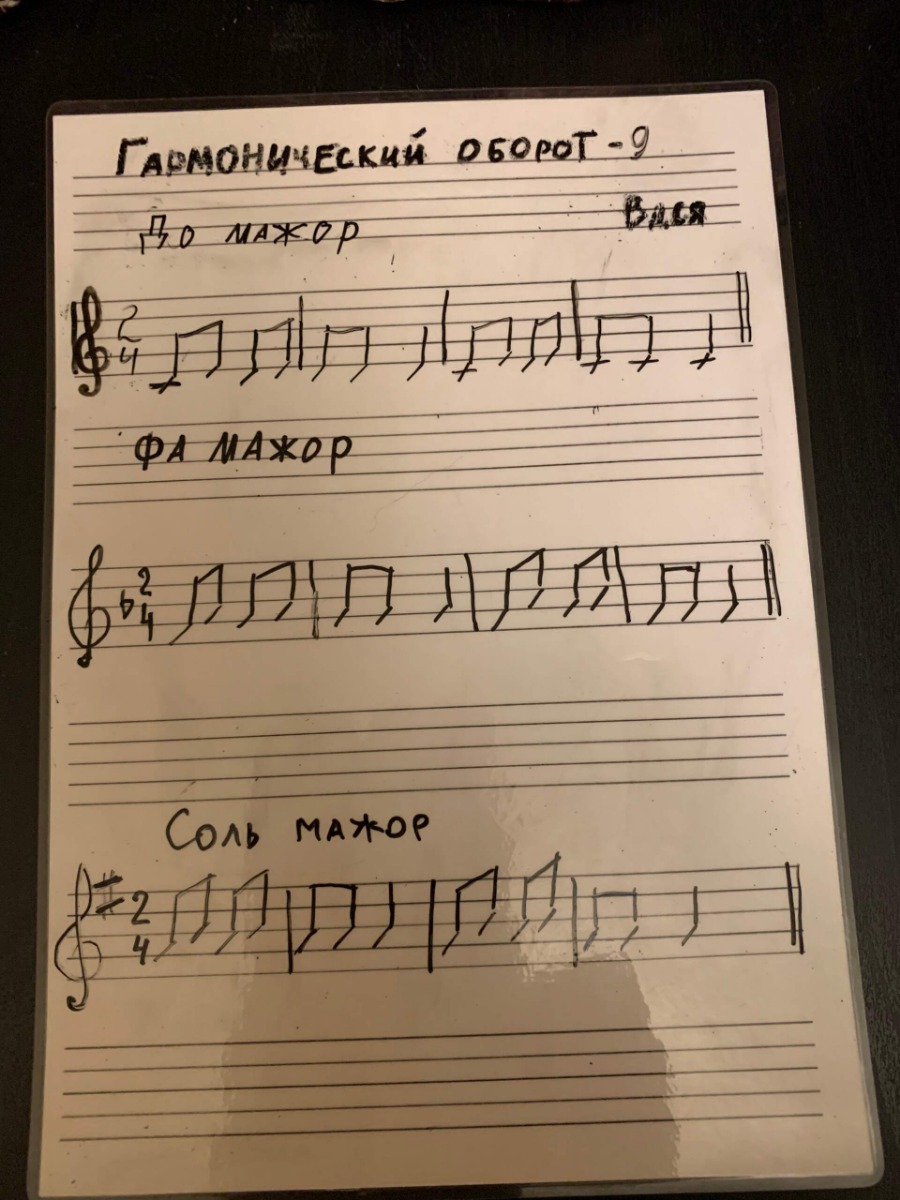 Гармонический оборот-9
Вася
До мажор
2
4
Фа мажор
2
4
Соль мажор
2
4